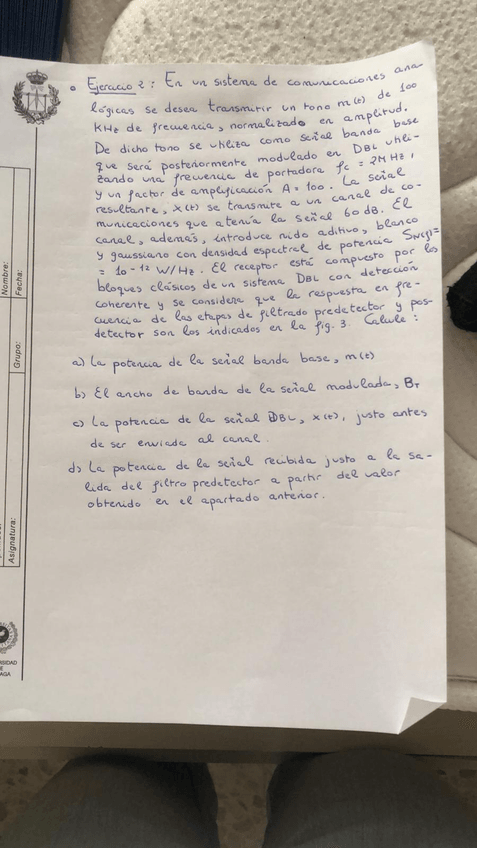 Ejercicio 2: En un sistema de comunicaciones ana-
lógicas se desea transmitir un tono m(t) de 100
KHz de frecuencia, normalizado en amplitud.
De dicho tono se utiliza como señal banda base
que será posteriormente modulado en DBL utili-
zando una frecuencia de portadora fc = 2MHz,
y un factor de amplificación A = 100. La señal
resultante, x(t) se transmite a un canal de co-
municaciones que atenúa la señal 60 dB. El
canal, además, introduce ruido aditivo, blanco
y gaussiano con densidad espectral de potencia SN(f)=
= 10-12 W/Hz. El receptor está compuesto por los
bloques clásicos de un sistema DBL con detección
coherente y se considera que la respuesta en fre-
cuencia de las etapas de filtrado predetector y pos-
detector son los indicados en la fig. 3. Calcule:
a) La potencia de la señal banda base, m(t)
b) El ancho de banda de la señal modulada, BT
c) La potencia de la señal DBL, x(t), justo antes
de ser enviada al canal.
d) La potencia de la señal recibida justo a la sa-
lida del filtro predetector a partir del valor
obtenido en el apartado anterior.
Nombre:
Fecha:
Grupo:
Asignatura: